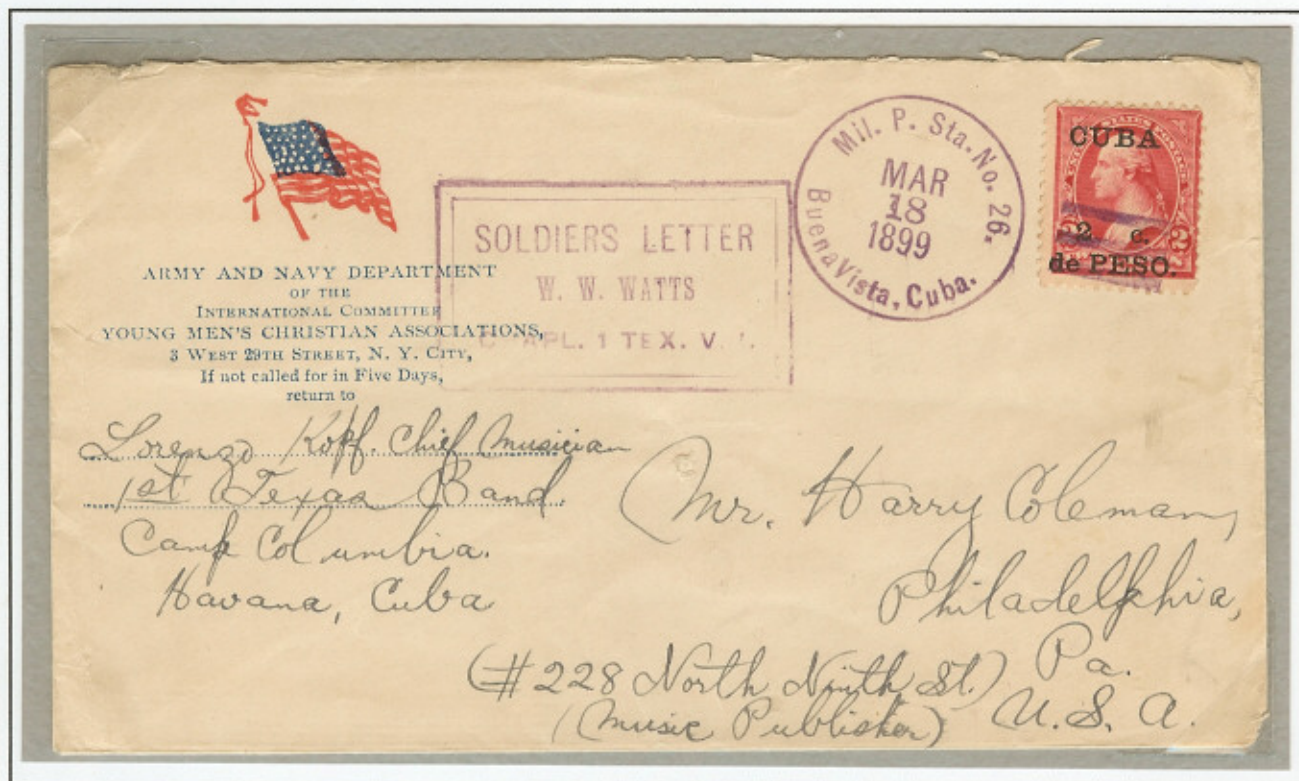 ARMY AND NAVY DEPARTMENT
OF THE
INTERNATIONAL COMMITTEE
YOUNG MEN'S CHRISTIAN ASSOCIATIONS,
3 WEST 29TH STREET, N. Y. CITY,
If not called for in Five Days,
return to
Lorenzo Kopf. Chief Musician
1st Texas Band.
Camp Columbia.
Havana, Cuba
SOLDIERS LETTER
W. W. WATTS
1 TEX. V.
Mil. P. Sta. No. 26.
MAR
18
1899
Buena Vista, Cuba.
CUBA
2 c.
2
de PESO.
Mr. Harry Coleman,
Philadelphia,
Pa.
(#228 North Ninth St.)
U.S.A.
(Music Publisher)